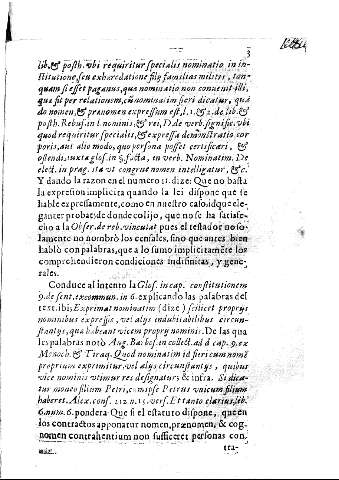 3
lib. & posth. vbi requiritur specialis nominatio in in-
stitutione, seu exhæredatione filij familias militis, tan-
quam si esset paganus, qua nominatio non conuenit illi,
que fit per relationem, cũ nominatim fieri dicatur, quã
do nomen, & prænomen expressum est, l. 1. & 2. de lib. &
posth. Rebuf. in l. nominis, & rei, D. de verb. signific. vbi
quod requiritur specialis, & expressa demonstratio cor
poris, aut alio modo, quo persona posset certificari, &
ostendi iuxta glos. in §. facta, in verb. Nominatim. De
elect. in prag. ita vt congrue nomen intelligatur, & c.
Y dando la razon en el numero 11. dize: Que no basta
la expression implicita quando la lei dispone que se
hable expressamente, como en nuestro caso, idque ele-
ganter probat; de donde colijo, que no se ha satisfe-
cho a la Obser. de reb. vincul. at pues el testador no so-
lamente no nombrò los censales, sino que antes bien
hablò con palabras, que a lo sumo implicitamẽte los
comprehendieron condiciones indifinitas, y gene-
rales.
Conduce al intento la Glos. in cap. constitutionem
9. de sent. excommun. in 6. explicando las palabras del
text. ibis, Exprimat nominatim (dize) scilicet proprijs
nominibus expressis, vel alijs indubitabilibus circun-
stantijs, qua habeant vicem proprij nominis. De las qua
les palabras notò Aug. Barbos. in collect. ad d. cap. 9. ex
Monoch. & Tiraq. Quod nominatim id fieri cum nomẽ
proprium exprimitur, vel alijs circunstantijs, quibus
vice nominis vtimur res designatur; & infra. Si dica-
tur mouto filium Petri, cum ipse Petrus vnicum filium
haberet. Alex. cons. 112. n. 15. vers. Et tanto clarius, lib.
6. num. 6. pondera: Que si el estatuto dispone, que en
los contractos apponatur nomen, prænomen, & cog-
nomen contrahentium non sufficeret personas con-
tra-